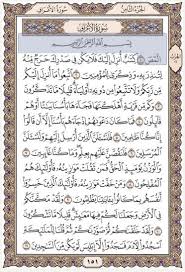 الجزء الثامن سورة الأعراف
سورة الأعراف
بسم الله الرحمن الرحيم
الٓمٓصٓ ۝ كِتَٰبٌ أُنزِلَ إِلَيْكَ فَلَا يَكُن فِي صَدْرِكَ حَرَجٌ مِّنْهُ
لِتُنذِرَ بِهِۦ وَذِكْرَىٰ لِلْمُؤْمِنِينَ ۝ ٱتَّبِعُوا۟ مَآ أُنزِلَ إِلَيْكُم
مِّن رَّبِّكُمْ وَلَا تَتَّبِعُوا۟ مِن دُونِهِۦٓ أَوْلِيَآءَ قَلِيلًا مَّا تَذَكَّرُونَ ۝
وَكَم مِّن قَرْيَةٍ أَهْلَكْنَٰهَا فَجَآءَهَا بَأْسُنَا بَيَٰتًا أَوْ هُمْ قَآئِلُونَ ۝
فَمَا كَانَ دَعْوَىٰهُمْ إِذْ جَآءَهُم بَأْسُنَآ إِلَّآ أَن قَالُوٓا۟ إِنَّا كُنَّا
ظَٰلِمِينَ ۝ فَلَنَسْـَٔلَنَّ ٱلَّذِينَ أُرْسِلَ إِلَيْهِمْ وَلَنَسْـَٔلَنَّ
ٱلْمُرْسَلِينَ ۝ فَلَنَقُصَّنَّ عَلَيْهِم بِعِلْمٍ وَمَا كُنَّا غَآئِبِينَ ۝
وَٱلْوَزْنُ يَوْمَئِذٍ ٱلْحَقُّ فَمَن ثَقُلَتْ مَوَٰزِينُهُۥ فَأُو۟لَٰٓئِكَ هُمُ
ٱلْمُفْلِحُونَ ۝ وَمَنْ خَفَّتْ مَوَٰزِينُهُۥ فَأُو۟لَٰٓئِكَ ٱلَّذِينَ خَسِرُوٓا۟
أَنفُسَهُم بِمَا كَانُوا۟ بِـَٔايَٰتِنَا يَظْلِمُونَ ۝ وَلَقَدْ مَكَّنَّٰكُمْ
فِي ٱلْأَرْضِ وَجَعَلْنَا لَكُمْ فِيهَا مَعَٰيِشَ قَلِيلًا مَّا تَشْكُرُونَ ۝
وَلَقَدْ خَلَقْنَٰكُمْ ثُمَّ صَوَّرْنَٰكُمْ ثُمَّ قُلْنَا لِلْمَلَٰٓئِكَةِ
ٱسْجُدُوا۟ لِـَٔادَمَ فَسَجَدُوٓا۟ إِلَّآ إِبْلِيسَ لَمْ يَكُن مِّنَ ٱلسَّٰجِدِينَ ۝
١٥١